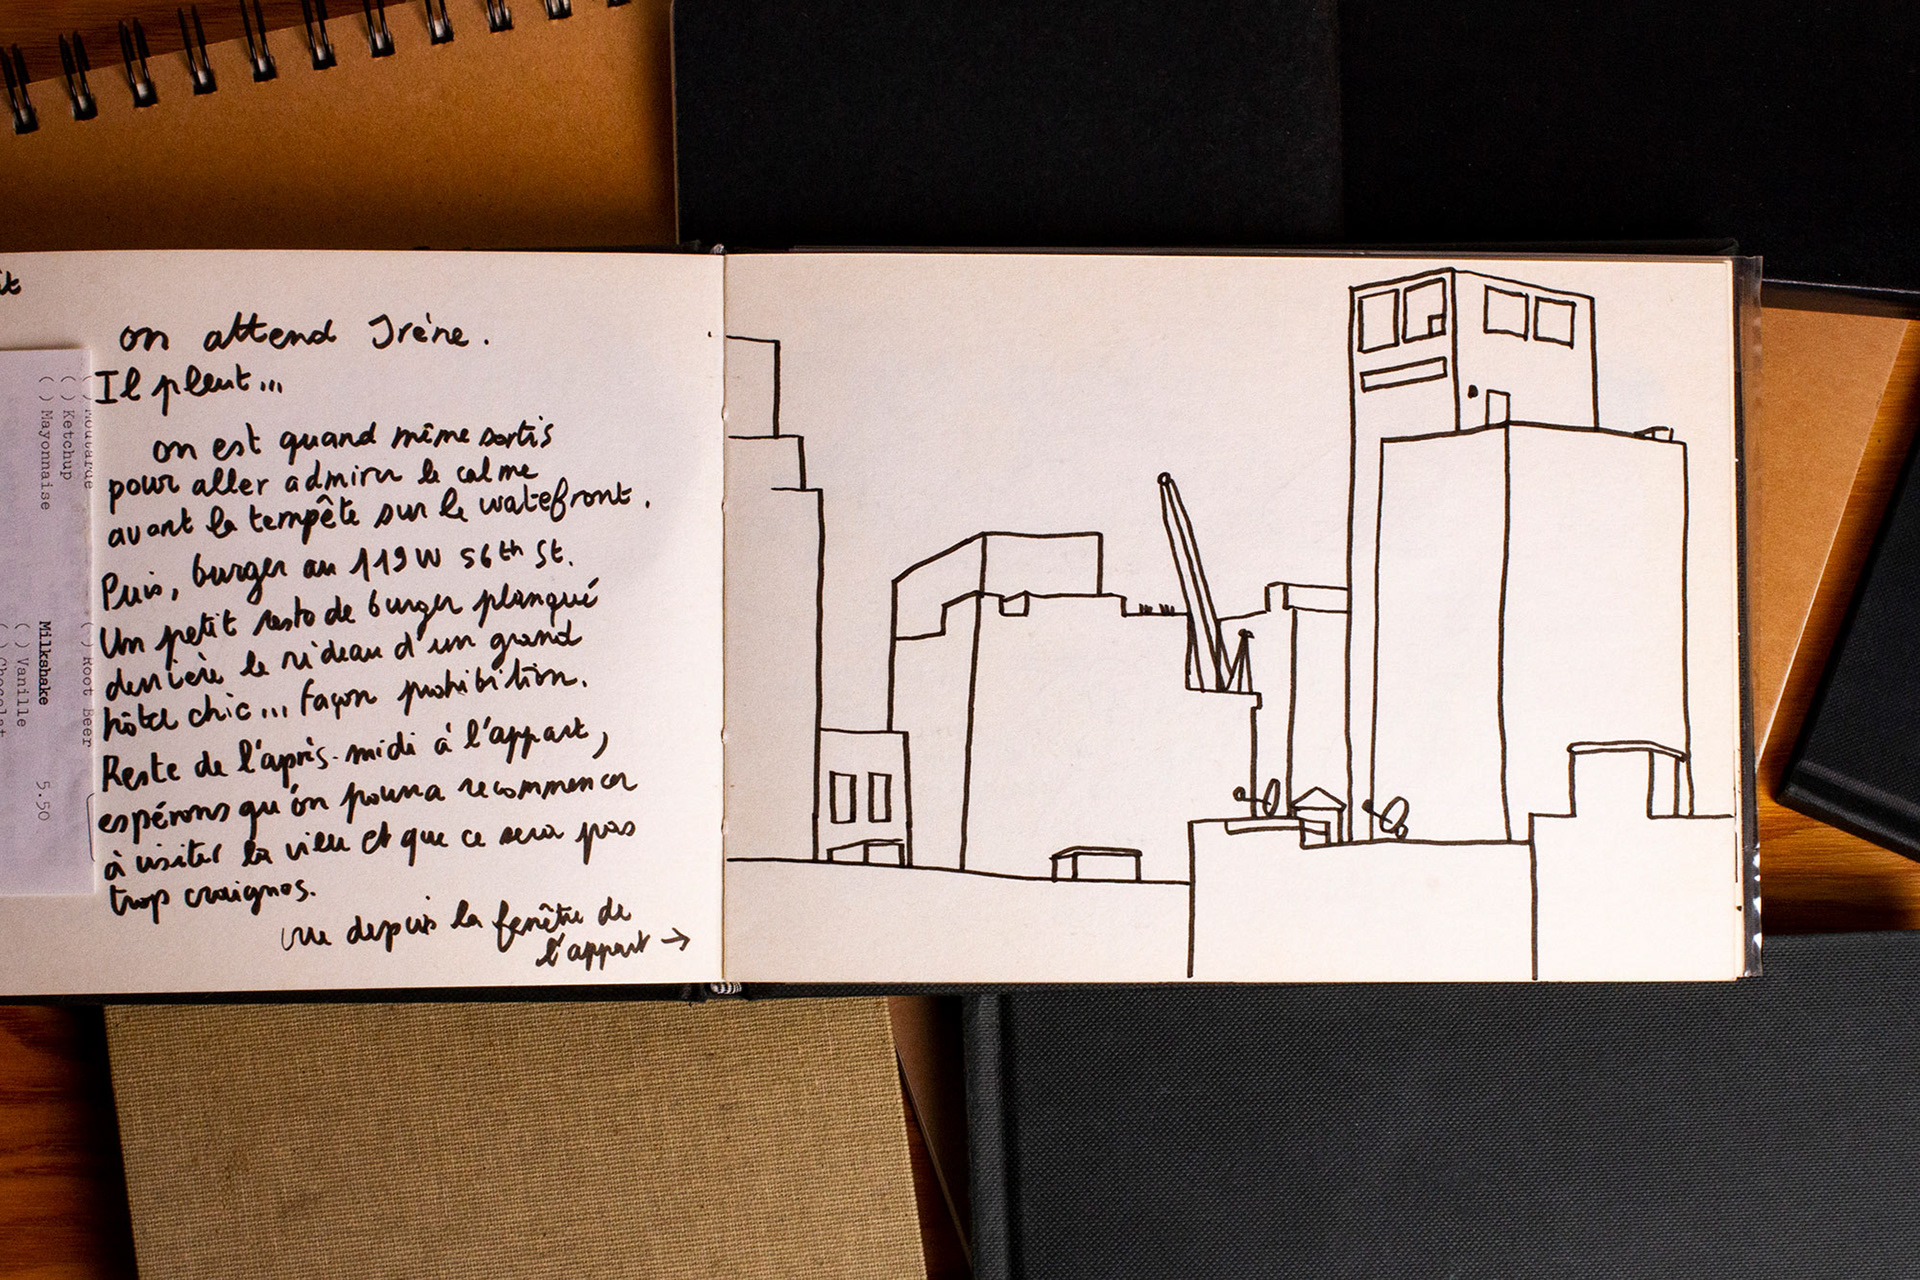 it
on attend Irène.
Il pleut...
on est quand même sortis
pour aller admirer le calme
avant la tempête sur le watefront.
Puis, burger au 119 W 56th St.
Un petit resto de burger planqué
derrière le rideau d'un grand
hôtel chic... façon prohibition.
Reste de l'après-midi à l'appart,
espérons qu'on pourra recommencer
à visiter la ville et que ce sera pas
trop craignos.
vue depuis la fenêtre de
l'appart →
( ) Moutarde
( ) Ketchup
( ) Mayonnaise
( ) Root Beer
Milkshake 5.50
( ) Vanille
( ) Chocolat